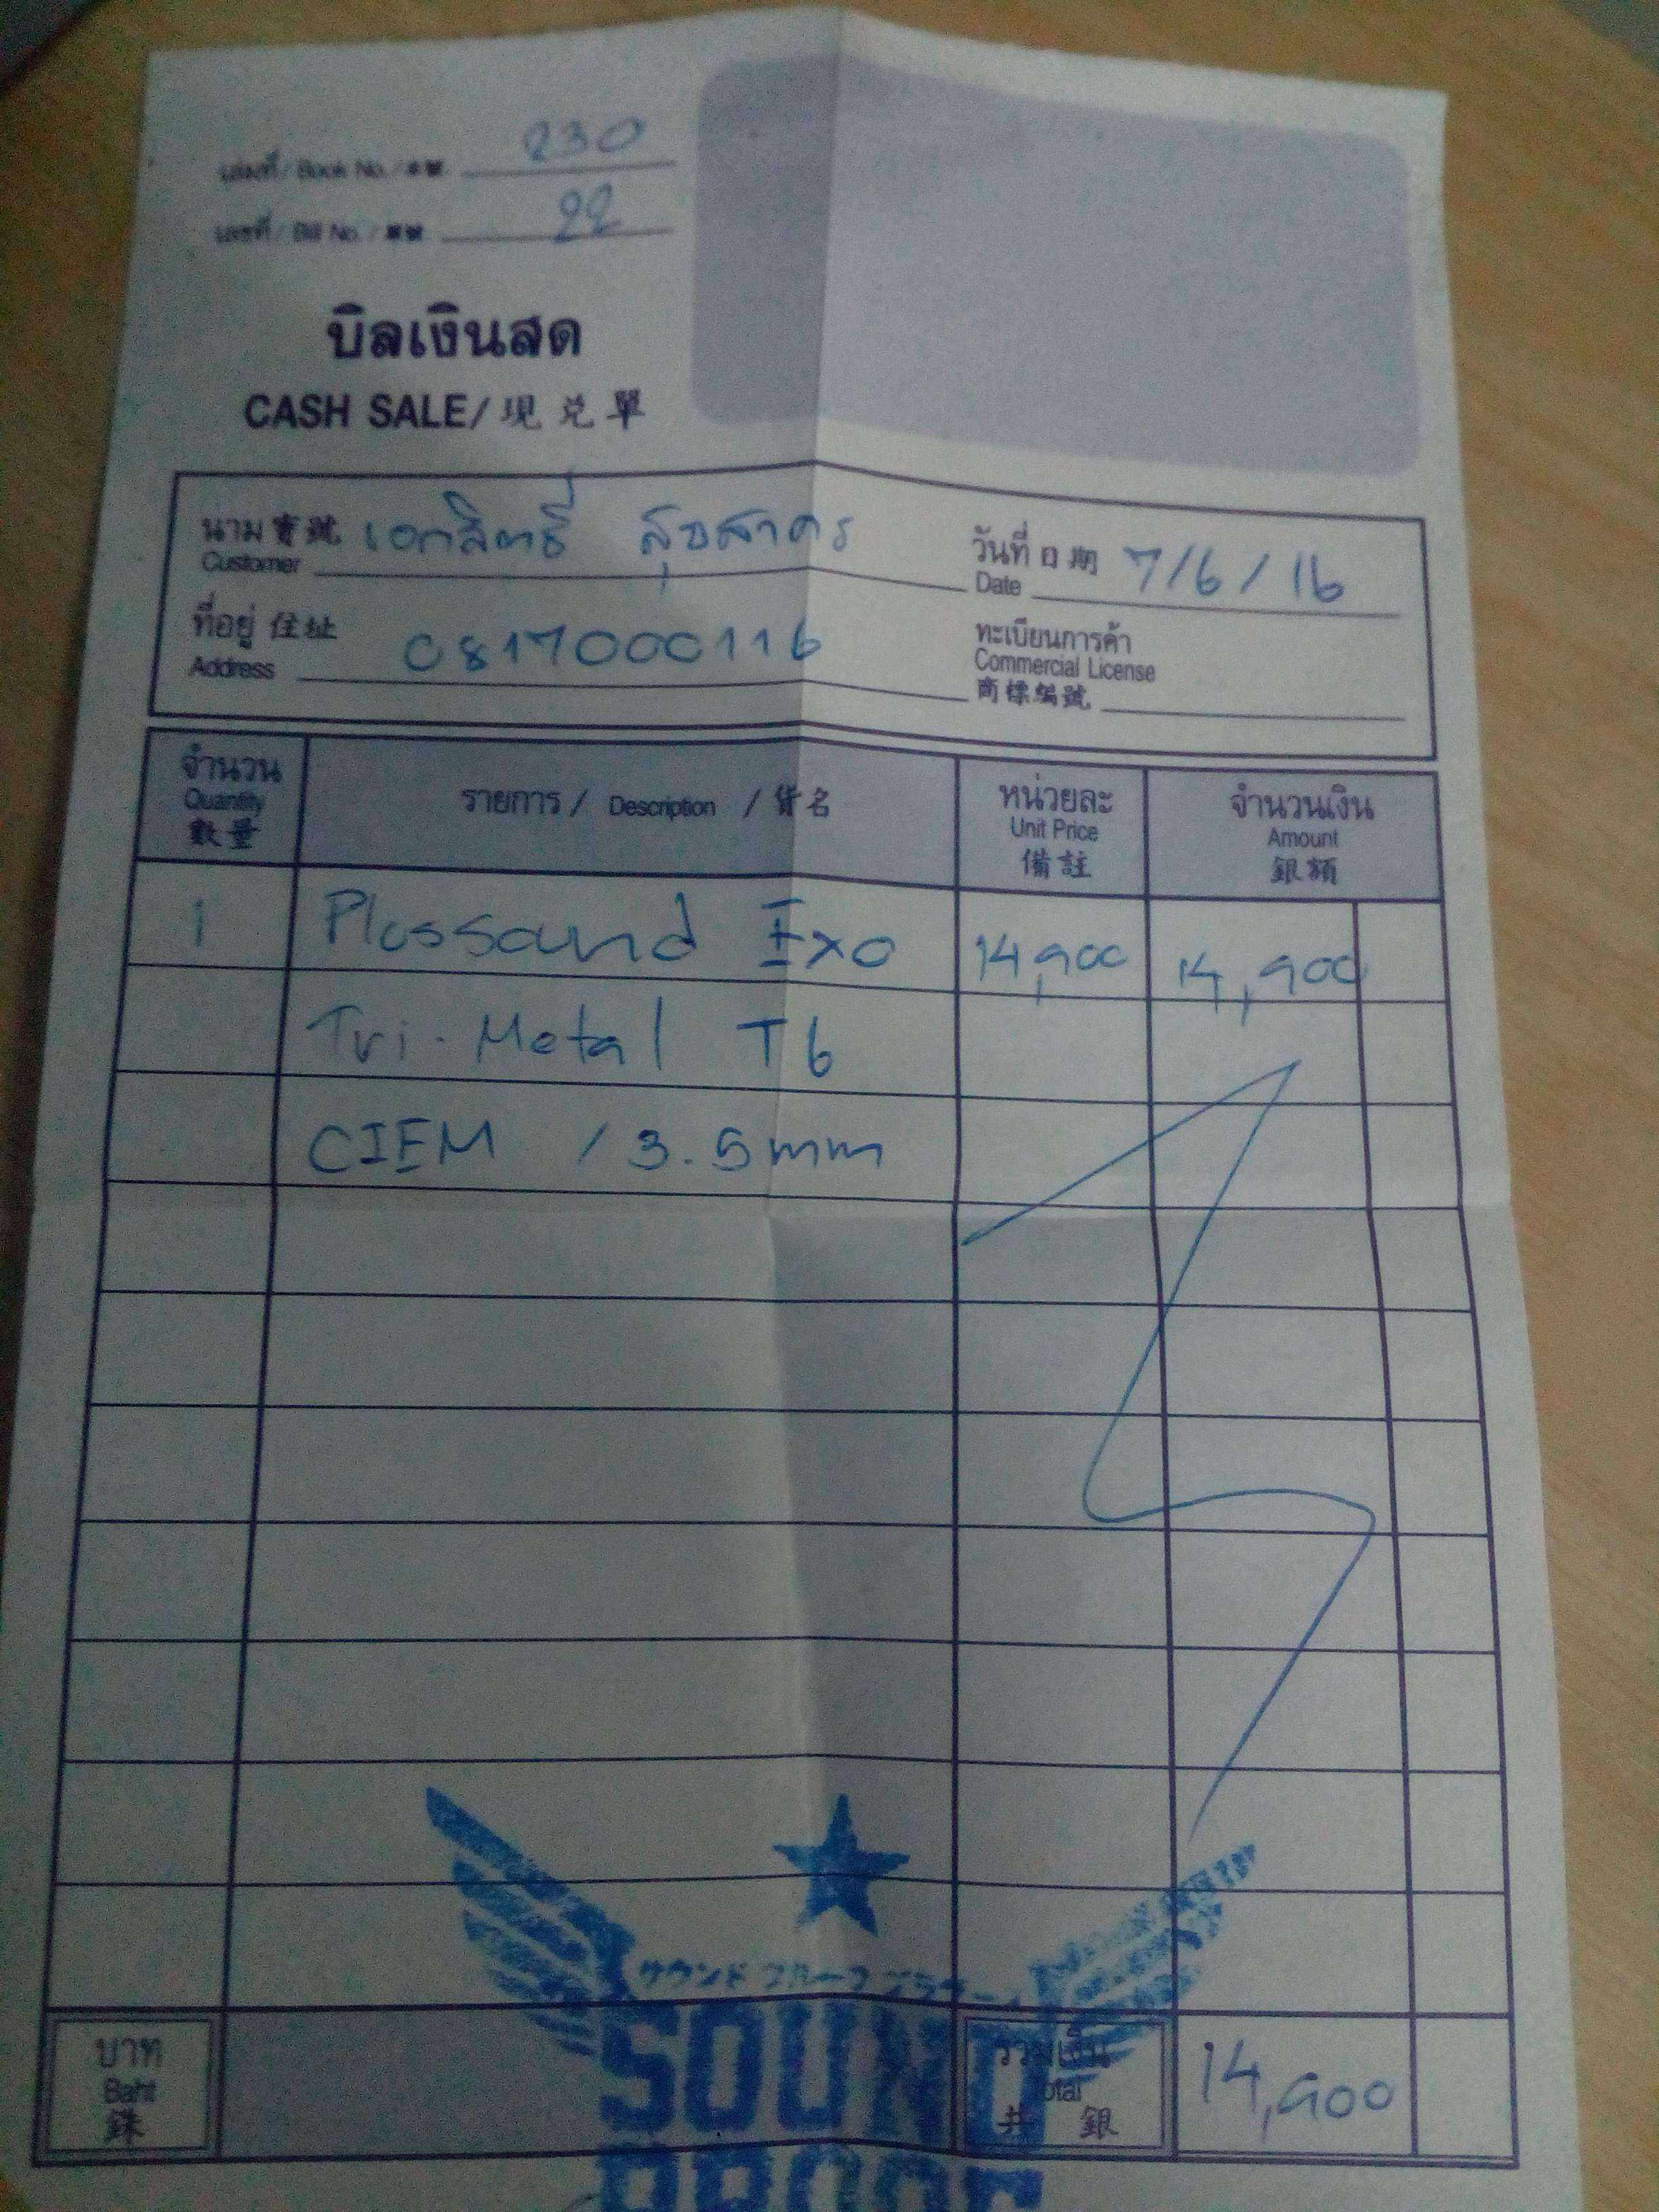 เล่มที่ / Book No. / 230
เลขที่ / Bill No. / 22
บิลเงินสด
CASH SALE/現兌單
นาม寶號 เอกสิทธิ์ สุขสาคร
Customer
วันที่日期 7/6/16
Date
ที่อยู่ 住址 0817000116
Address
ทะเบียนการค้า
Commercial License
商標編號
จำนวน
Quantity
數量
รายการ / Description / 貨名
หน่วยละ
Unit Price
備註
จำนวนเงิน
Amount
銀額
1 Plussound Exo 14,900 14,900
Tri-Metal T6
CIEM / 3.5mm
サウンド プルーフ ブラザー
SOUND
PROOF
บาท
Baht
銖
รวมเงิน
Total
共銀
14,900